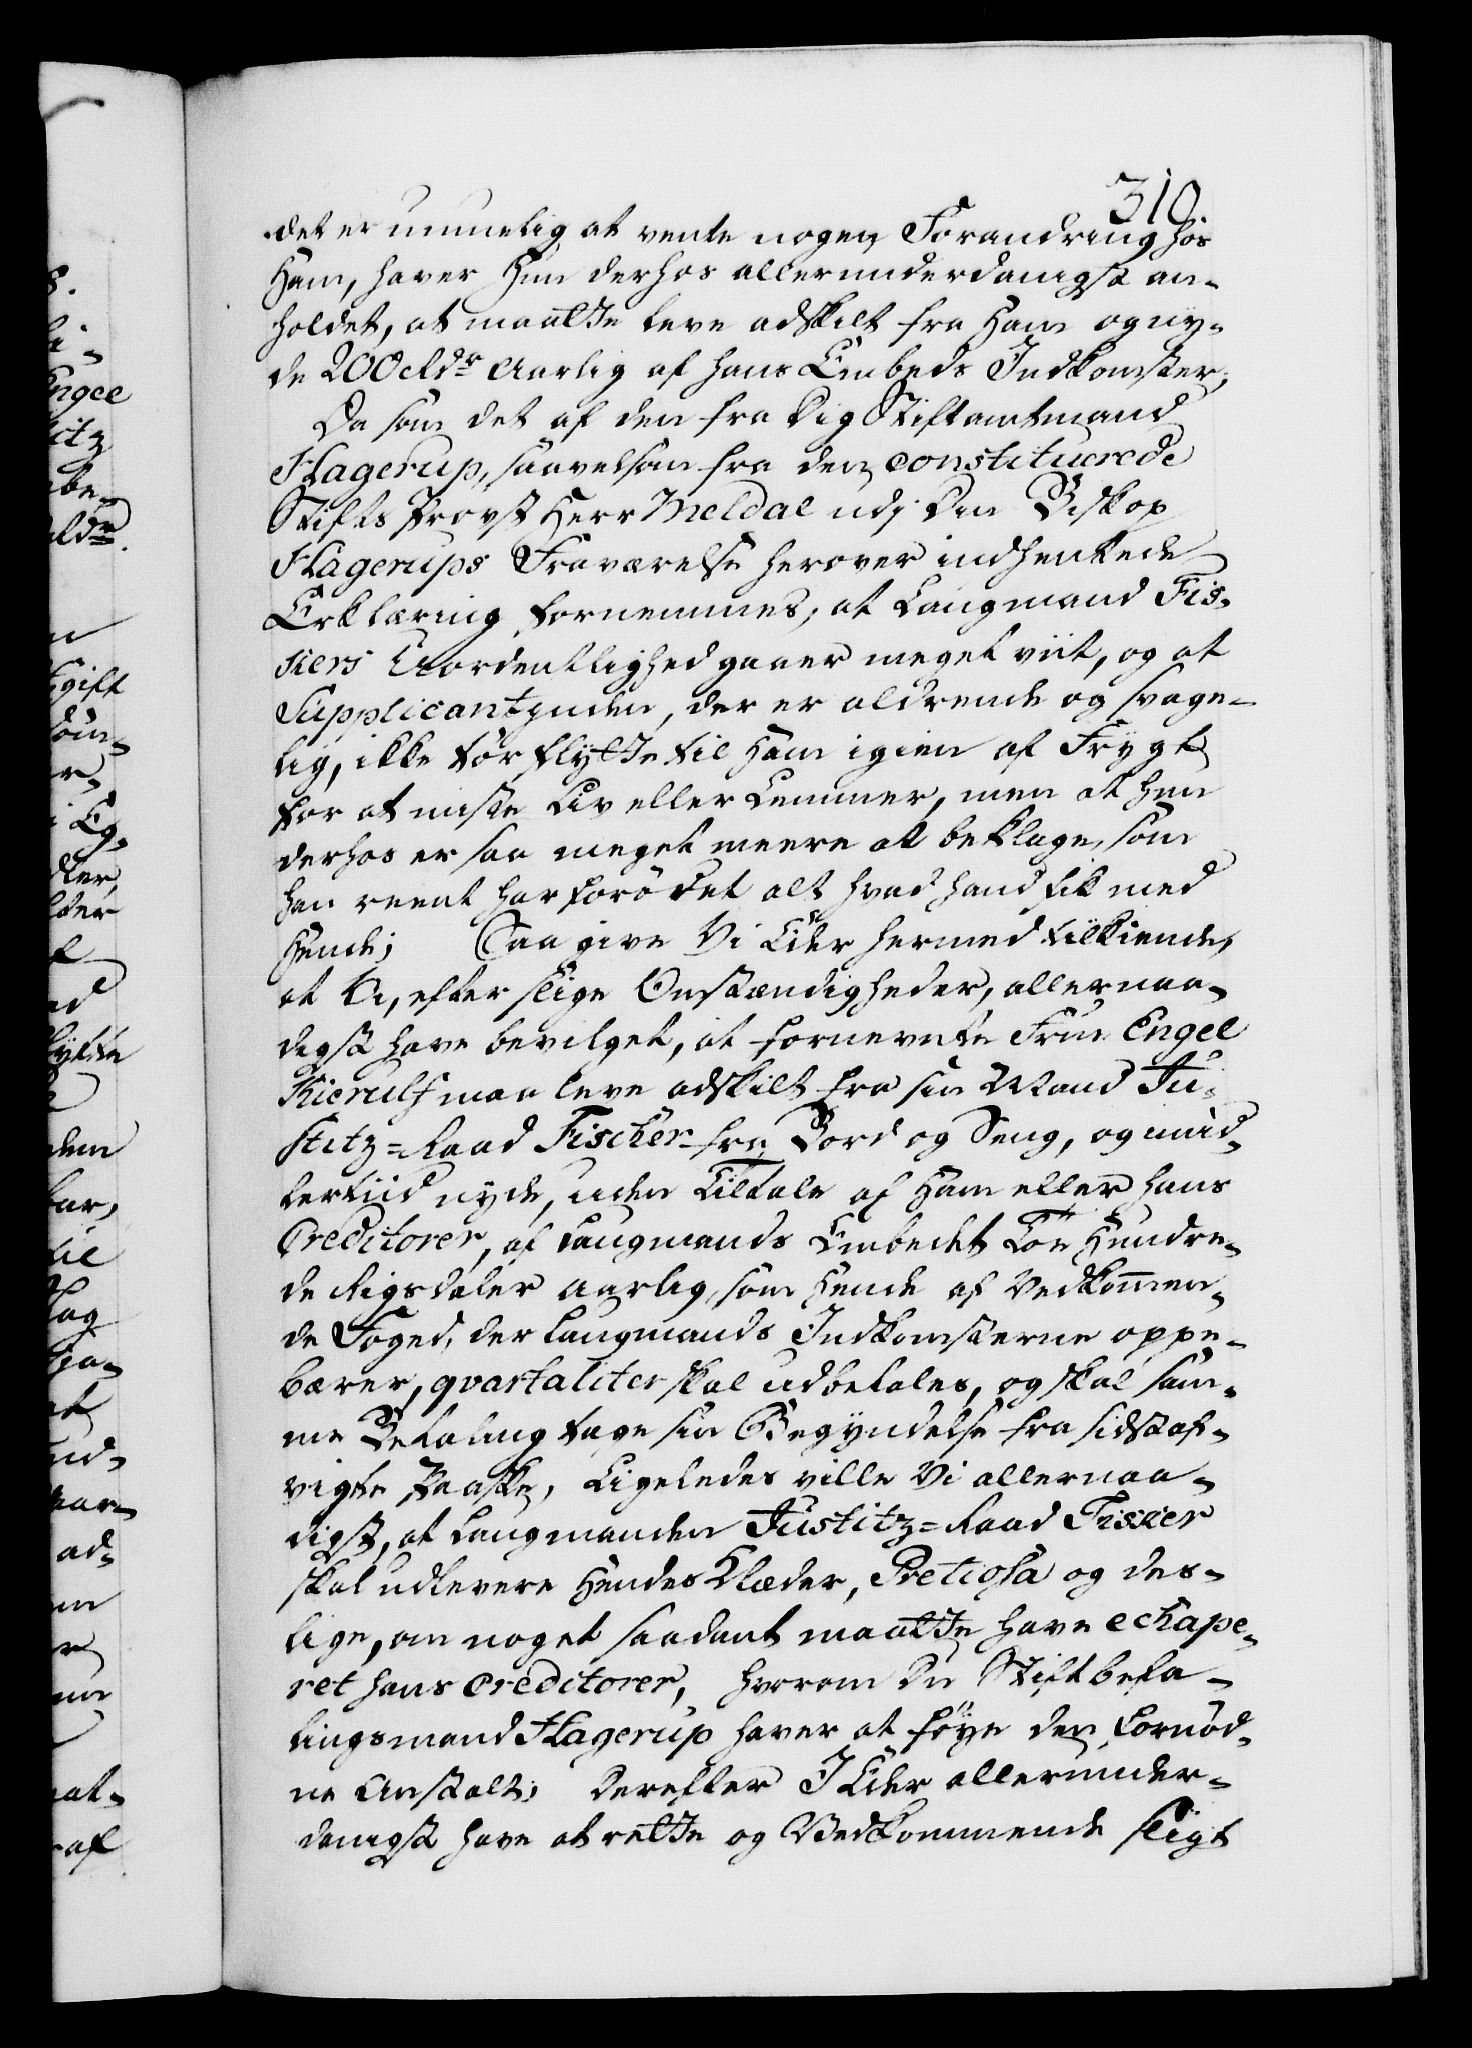 310
det er umuelig at vente nogen Forandring hos
Ham, haver Hun derhos allerunderdanigst an-
holdet, at maatte leve adskilt fra Ham og ny-
de 200 Rdr aarlig af hans Embeds Indkomster;
Da som det af den fra Dig Stiftamtmand
Hagerup, saavelsom fra den constituerede
Stifts Provst Herr Meldal udj Din Biskop
Hagerups Fraværelse herover indhentede
Erklæring fornemmes, at Laugmand Fis-
siers Uordentlighed gaaer meget viit, og at
Supplicantinden, der er aldrende og svage-
lig, ikke tør flytte til Ham igien af Frygt
for at miste Liv eller Lemmer, men at hun
derhos er saa meget meere at beklage, som
han reent har forødet alt hvad hand fik med
Hende; Saa give Vi Eder hermed tilkiende,
at Vi, efter slige Omstændigheder, allernaa-
digst have bevilget, at fornevnte Frue Engel
Kierulf maa leve adskilt fra sin Mand Ju-
stitz=Raad Fischer fra Bord og Seng, og mid-
lertiid nyde, uden Tiltale af Ham eller hans
Creditorer, af Laugmands Embedet Toe Hundre-
de Rigsdaler aarlig, som Hende af Vedkommen-
de Foged, der Laugmands Indkomsterne oppe-
bærer, qvartaliter skal udbetales, og skal sam-
me Betaling tage sin Begyndelse fra sidst af-
vigte Paaske, Ligeledes ville Vi allernaa-
digst, at Laugmanden Justitz=Raad Fissier
skal udlevere Hendes Klæder, Pretiosa og des-
lige, om noget saadant maatte have echape-
ret hans Creditorer, hvorom Du Stiftbefa-
lingsmand Hagerup haver at føye den fornød-
ne Anstalt; Derefter I Eder allerunder-
danigst have at rette og Vedkommende sligt